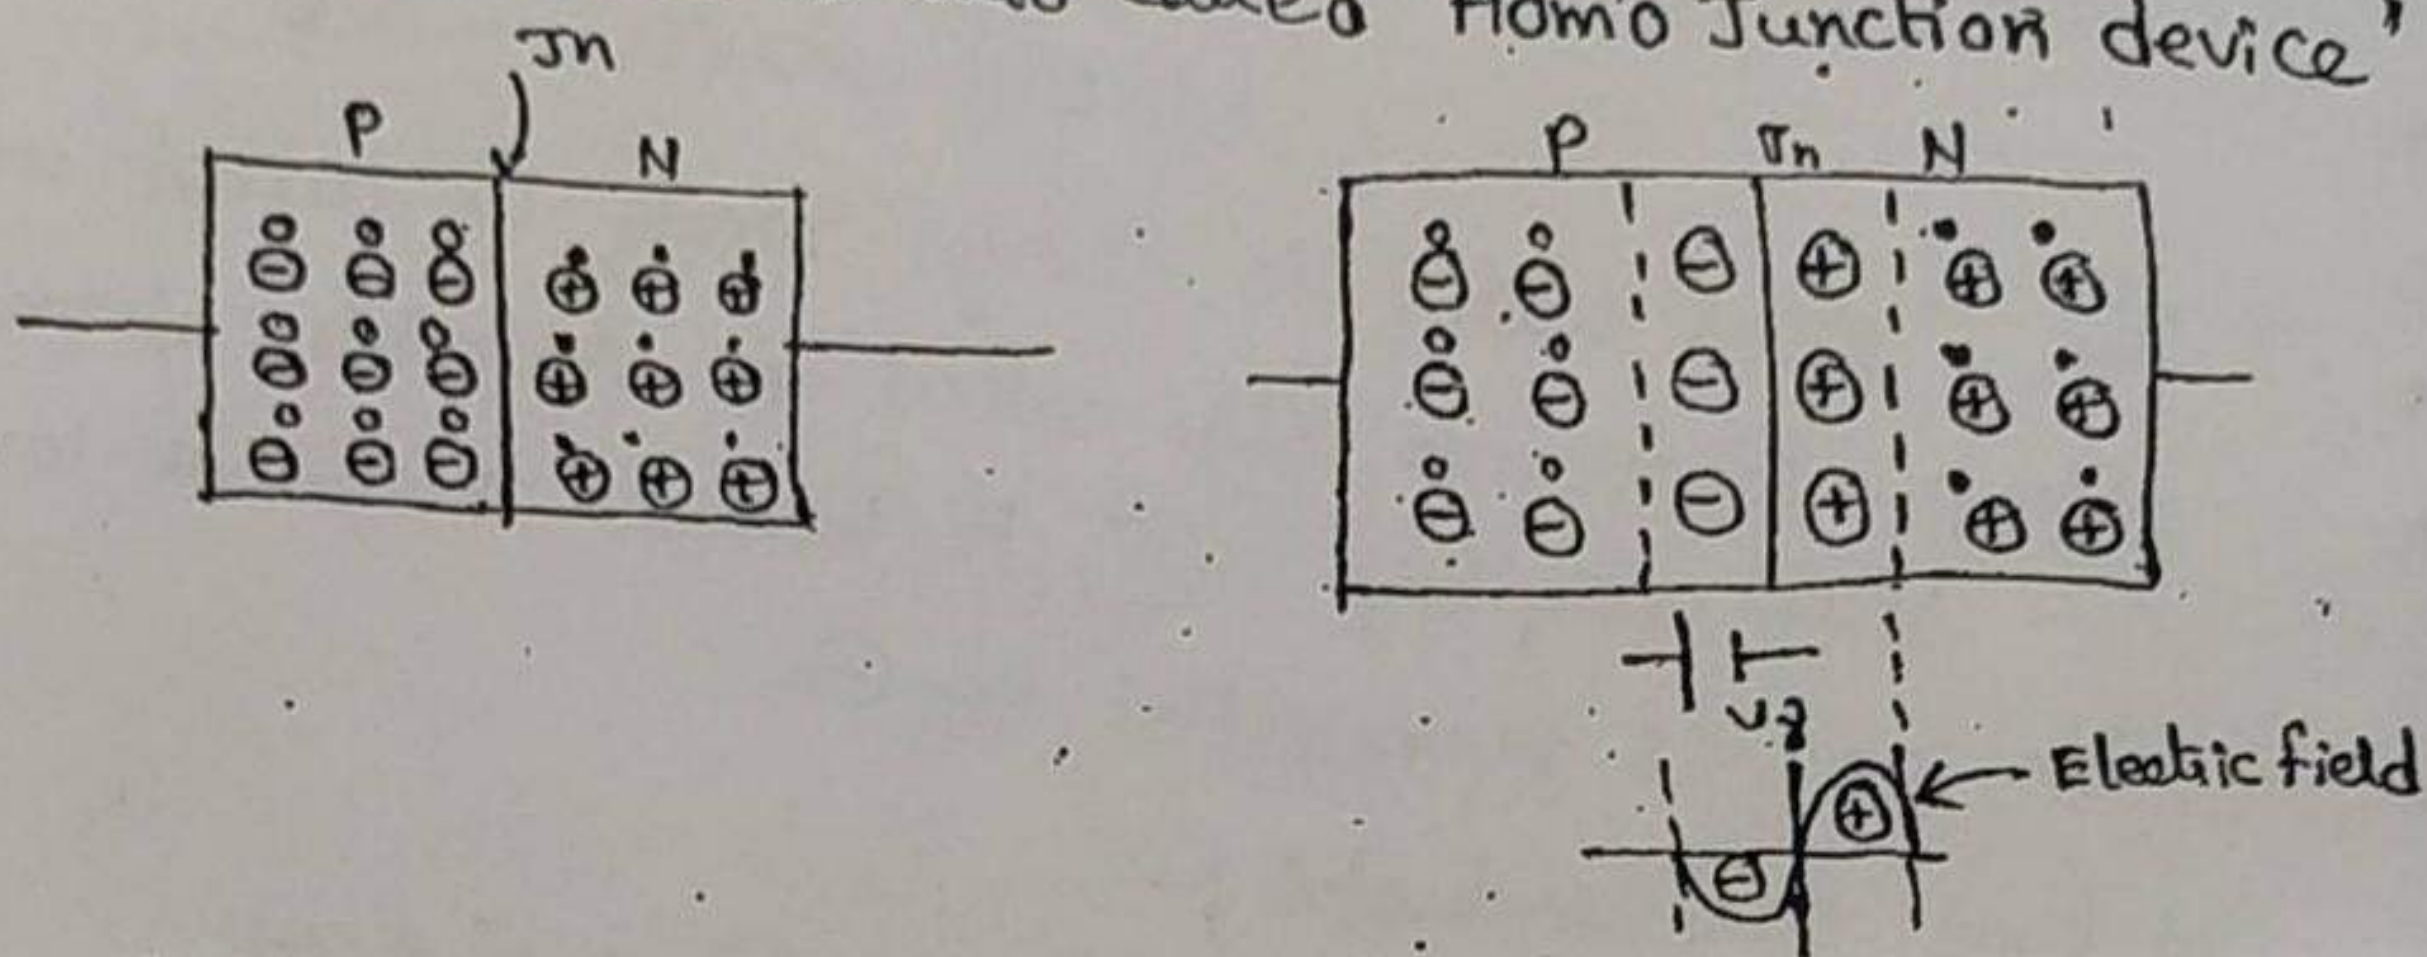 called "Homo Junction device"
Jn
P N
P Jn N
Electric field